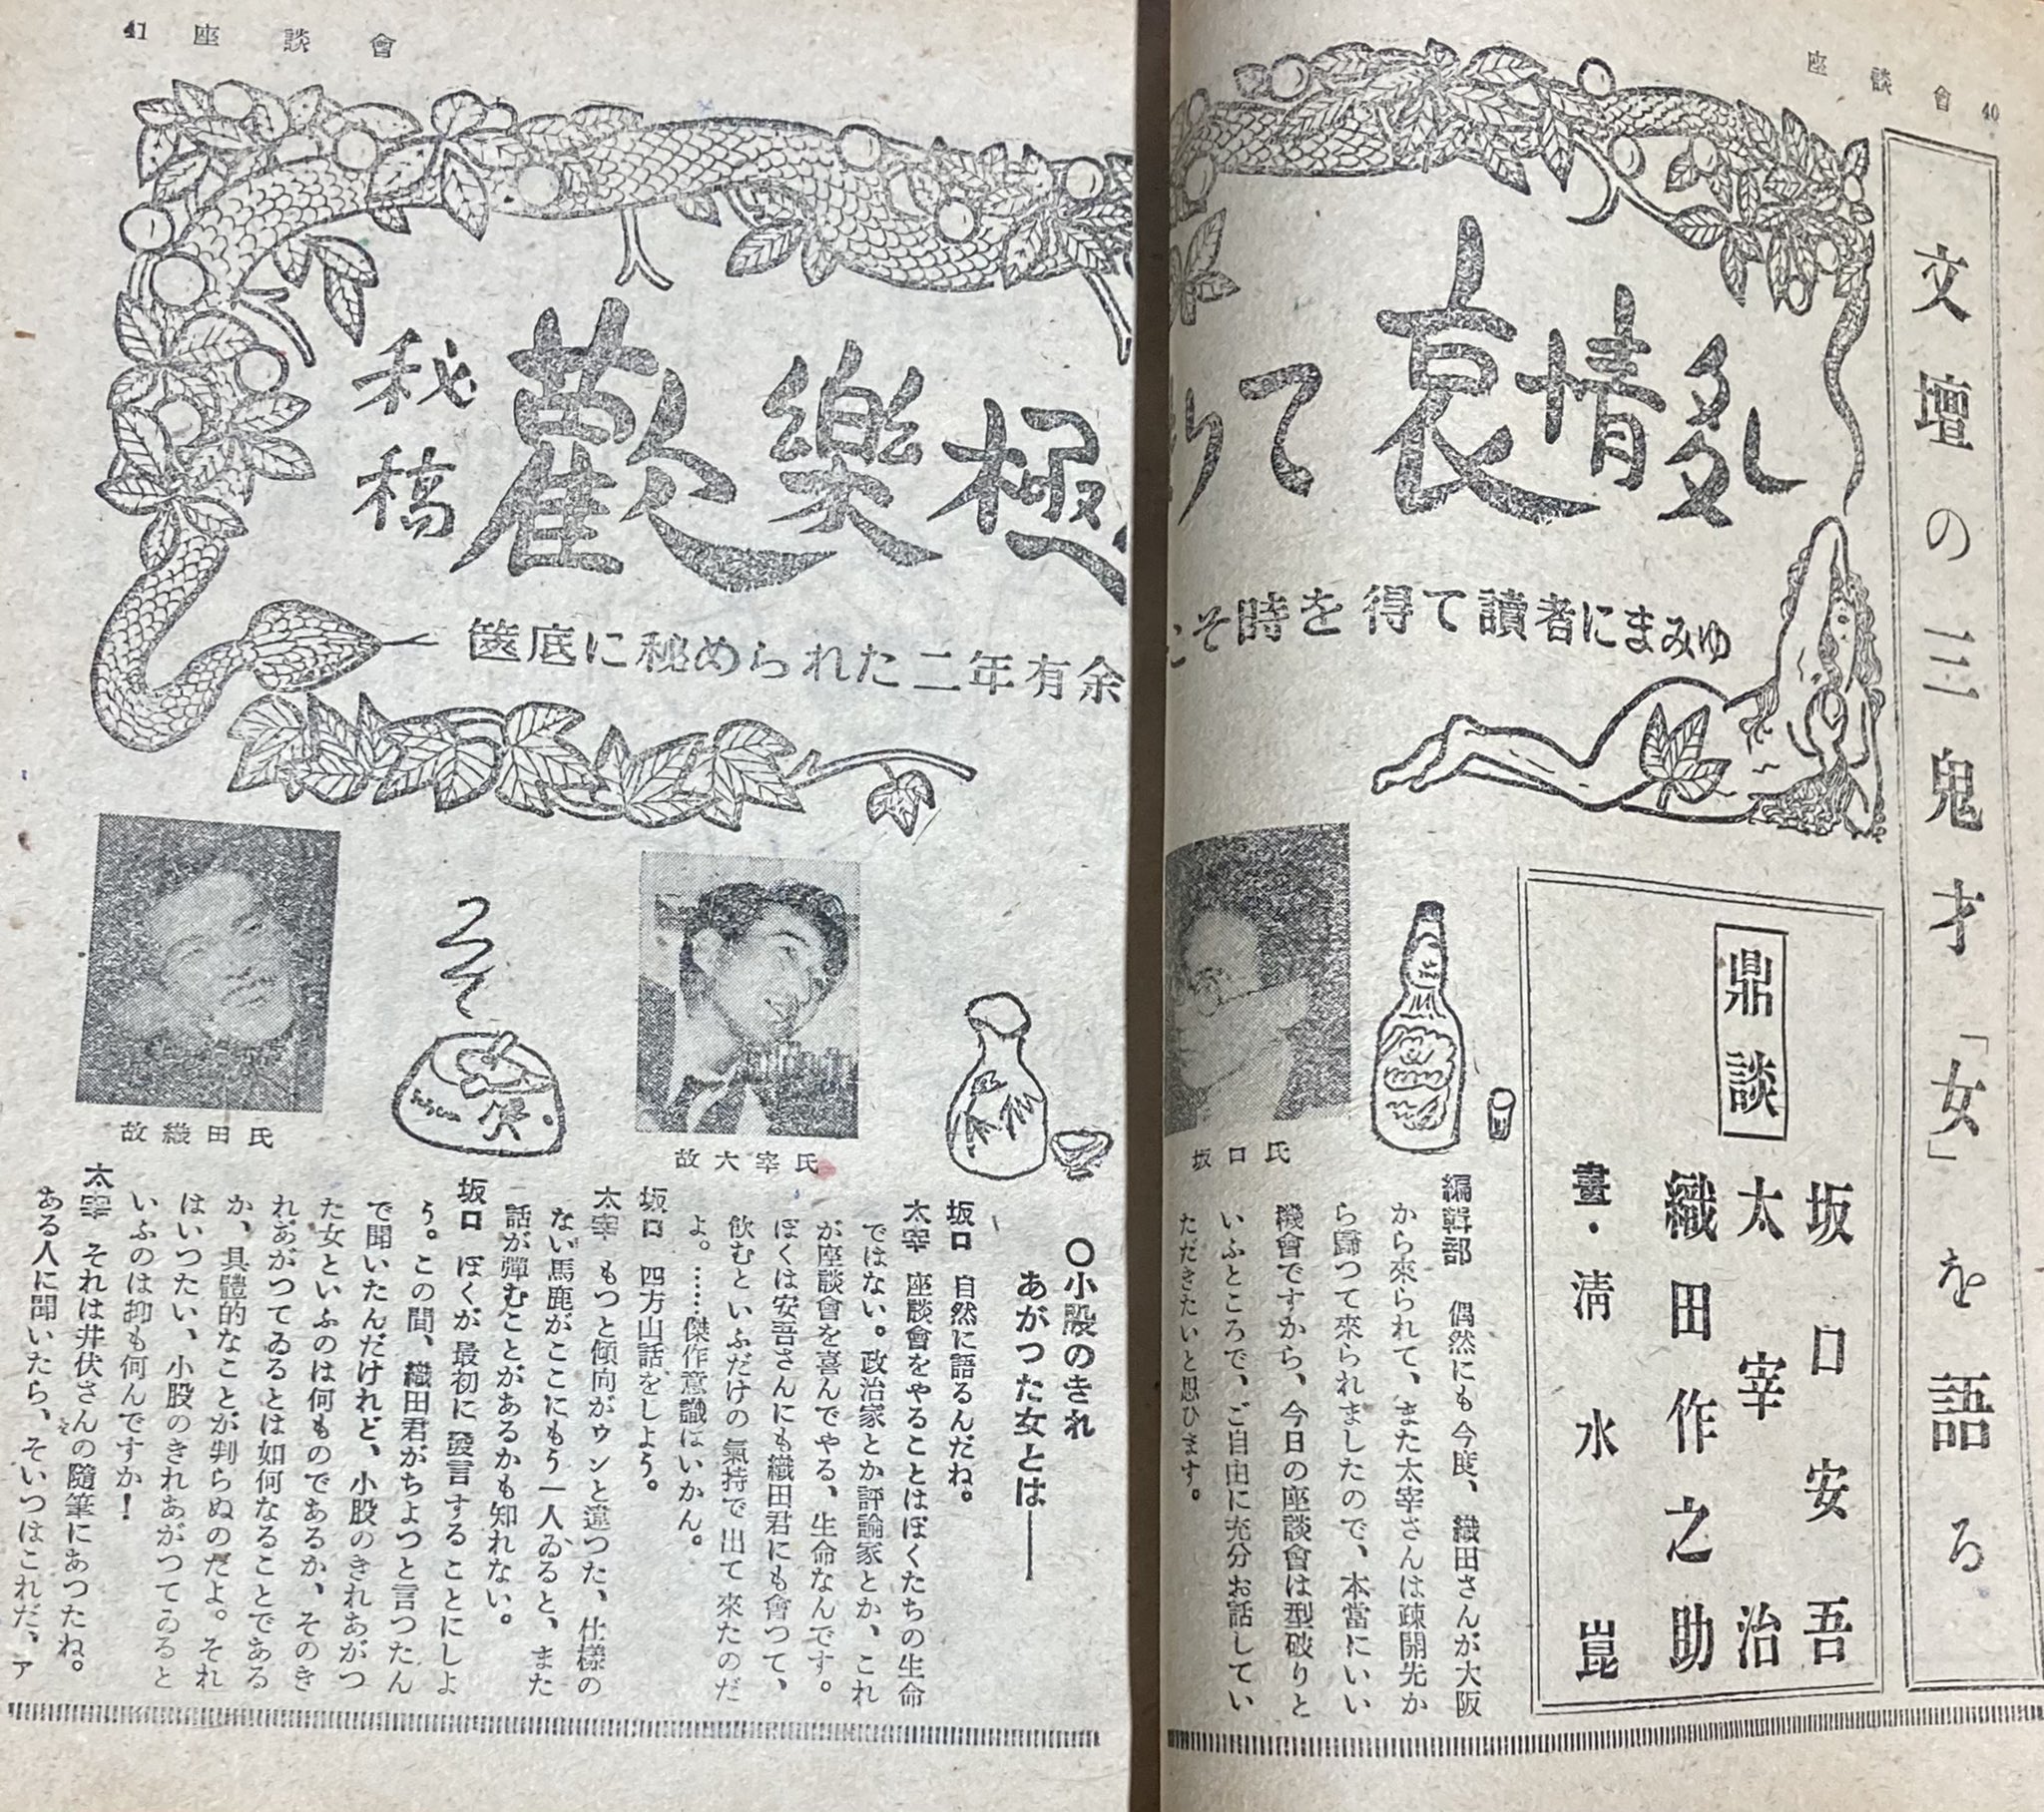 座談會 40
文壇の三鬼才「女」を語る
秘稿
歡樂極りて哀情多し
筺底に秘められた二年有余
こそ時を得て讀者にまみゆ
鼎談
坂口安吾
太宰治
織田作之助
畫・淸水崑
坂口氏
編輯部 偶然にも今度、織田さんが大阪
から來られて、また太宰さんは疎開先か
ら歸つて來られましたので、本當にいい
機會ですから、今日の座談會は型破りと
いふところで、ご自由に充分お話してい
ただきたいと思ひます。
41 座談會
故太宰氏
故織田氏
〇小股のきれ
あがつた女とは――
坂口 自然に語るんだね。
太宰 座談會をやることはぼくたちの生命
ではない。政治家とか評論家とか、これ
が座談會を喜んでやる、生命なんです。
ぼくは安吾さんにも織田君にも會つて、
飲むといふだけの氣持で出て來たのだ
よ。……傑作意識はいかん。
坂口 四方山話をしよう。
太宰 もつと傾向がゥンと違つた、仕樣の
ない馬鹿がここにもう一人ゐると、また
話が彈むことがあるかも知れない。
坂口 ぼくが最初に發言することにしよ
う。この間、織田君がちよつと言つたん
で聞いたんだけれど、小股のきれあがつ
た女といふのは何ものであるか、そのき
れあがつてゐるとは如何なることである
か、具體的なことが判らぬのだよ。それ
はいつたい、小股のきれあがつてゐると
いふのは抑も何んですか！
太宰 それは井伏さんの隨筆にあつたね。
ある人に聞いたら、そいつはこれだ、ア